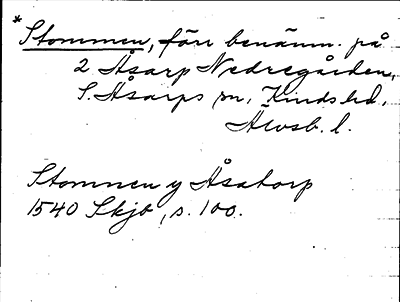 * Stommen, förr benämn. på
2 Åsarp Nedregården,
S. Åsarps sn, Kinds hd,
Älvsb. l.
Stommen y Åsatorp
1540 Skjb, s. 100.